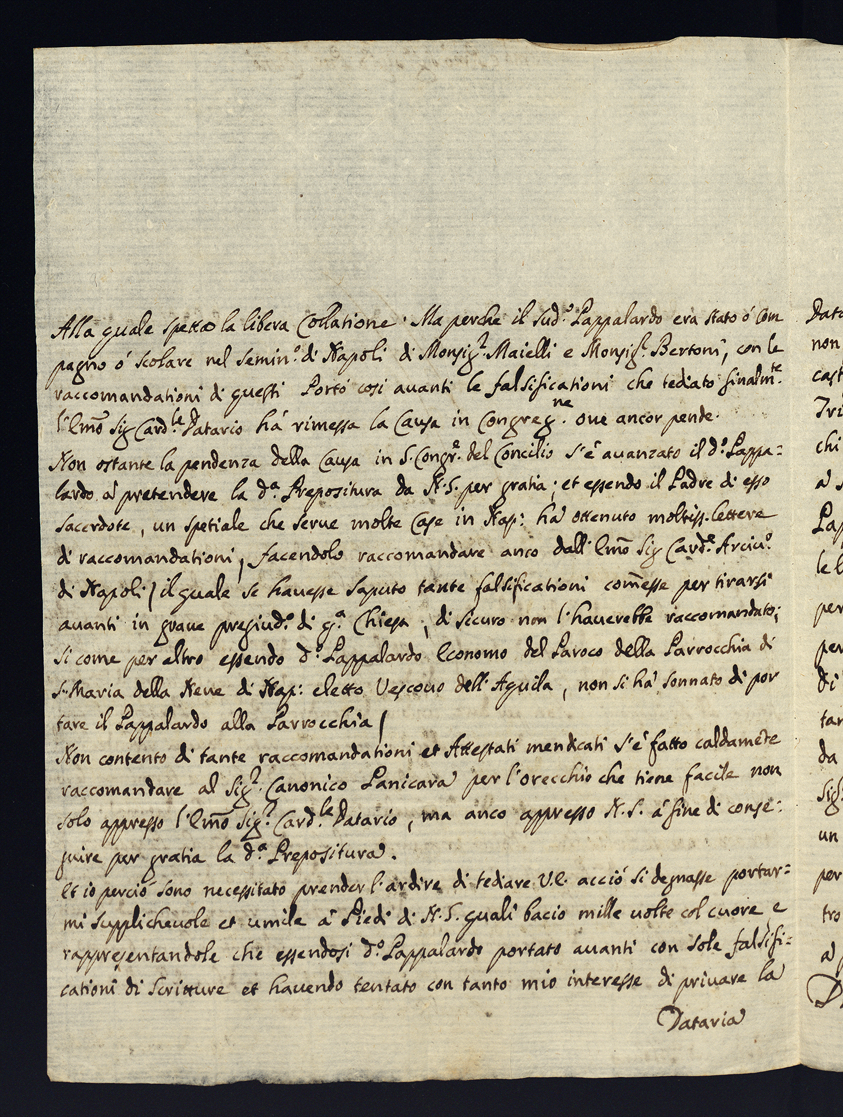 Alla quale spetta la libera Collatione. Ma perche il sud.º Pappalardo era stato ò Com
pagno ó scolare nel Semin.º di Napoli di Monsig.r Maielli e Monsig.r Bertoni, con le
raccomandationi di questi Portò cosi auanti le falsificationi che tediato finalm.te
l'Emõ Sig Card.le Datario há rimessa la Causa in Congreg.ne oue ancor pende.
Non ostante la pendenza della Causa in S. Congr.e del Concilio s'é auanzato il d.º Pappa=
lardo á pretendere la d.a Prepositura da N.S. per gratia; et essendo il Padre di esso
Sacerdote, un spetiale che serue molte Case in Nap: ha ottenuto moltiss. lettere
di raccomandationi, facendolo raccomandare anco dall'Emõ Sig Card.e Arciu.º
di Napoli / il quale se hauesse saputo tante falsificationi com̃esse per tirarsi
auanti in graue pregiud.º di q.a Chiesa, di sicuro non l'hauerebbe raccomandato;
si come per altro essendo d.º Pappalardo Economo del Paroco della Parrocchia di
S. Maria della Neue di Nap: eletto Vescouo dell'Aquila, non si há sonnato di por
tare il Pappalardo alla Parrocchia /
Non contento di tante raccomandationi et Attestati mendicati s'é fatto caldamẽte
raccomandare al Sig.r Canonico Panicara per l'orecchio che tiene facile non
solo appresso l'Emõ Sig.r Card.le Datario, ma anco appresso N.S. á fine di conse=
guire per gratia la d.a Prepositura.
Et io perció sono necessitato prender l'ardire di tediare V.E. acció si degnasse portar=
mi supplicheuole et umile á Piedi di N.S. quali bacio mille uolte col cuore e
rappresentandole che essendosi d.º Pappalardo portato auanti con sole falsifi=
cationi di Scritture et hauendo tentato con tanto mio interesse di priuare la
Dataria